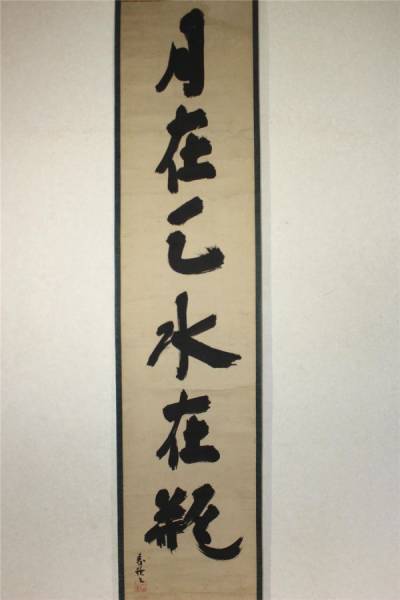 月在云水在瓶